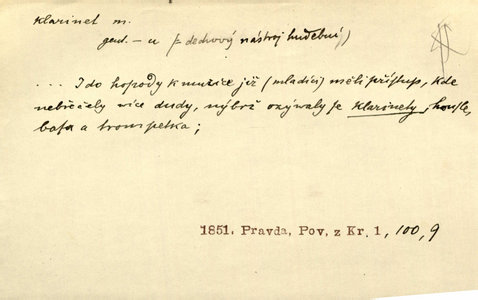 klarinet m.
gend. - u (= dechový nástroj hudební)
... I do hopody k muzice již (mladíci) měli přístup, kde
nebřečely více dudy, nýbrž ozývaly se klarinety, housle,
basa a trompetka;
1851. Pravda, Pov. z Kr. 1, 100, 9